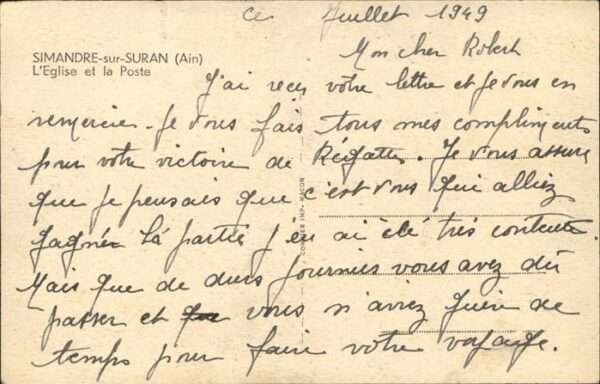 ce Juillet 1949
SIMANDRE-sur-SURAN (Ain)
L'Eglise et la Poste
Mon cher Robert
J'ai reçu votre lettre et je vous en
remercie. Je vous fais tous mes compliments
pour votre victoire de Régattes. Je vous assure
que je pensais que c'est vous qui alliez
gagner la partie j'en ai été très contente.
Mais que de dures journées vous avez dû
passer et vous n'aviez guère de
temps pour faire votre voyage.
IMP. MACON